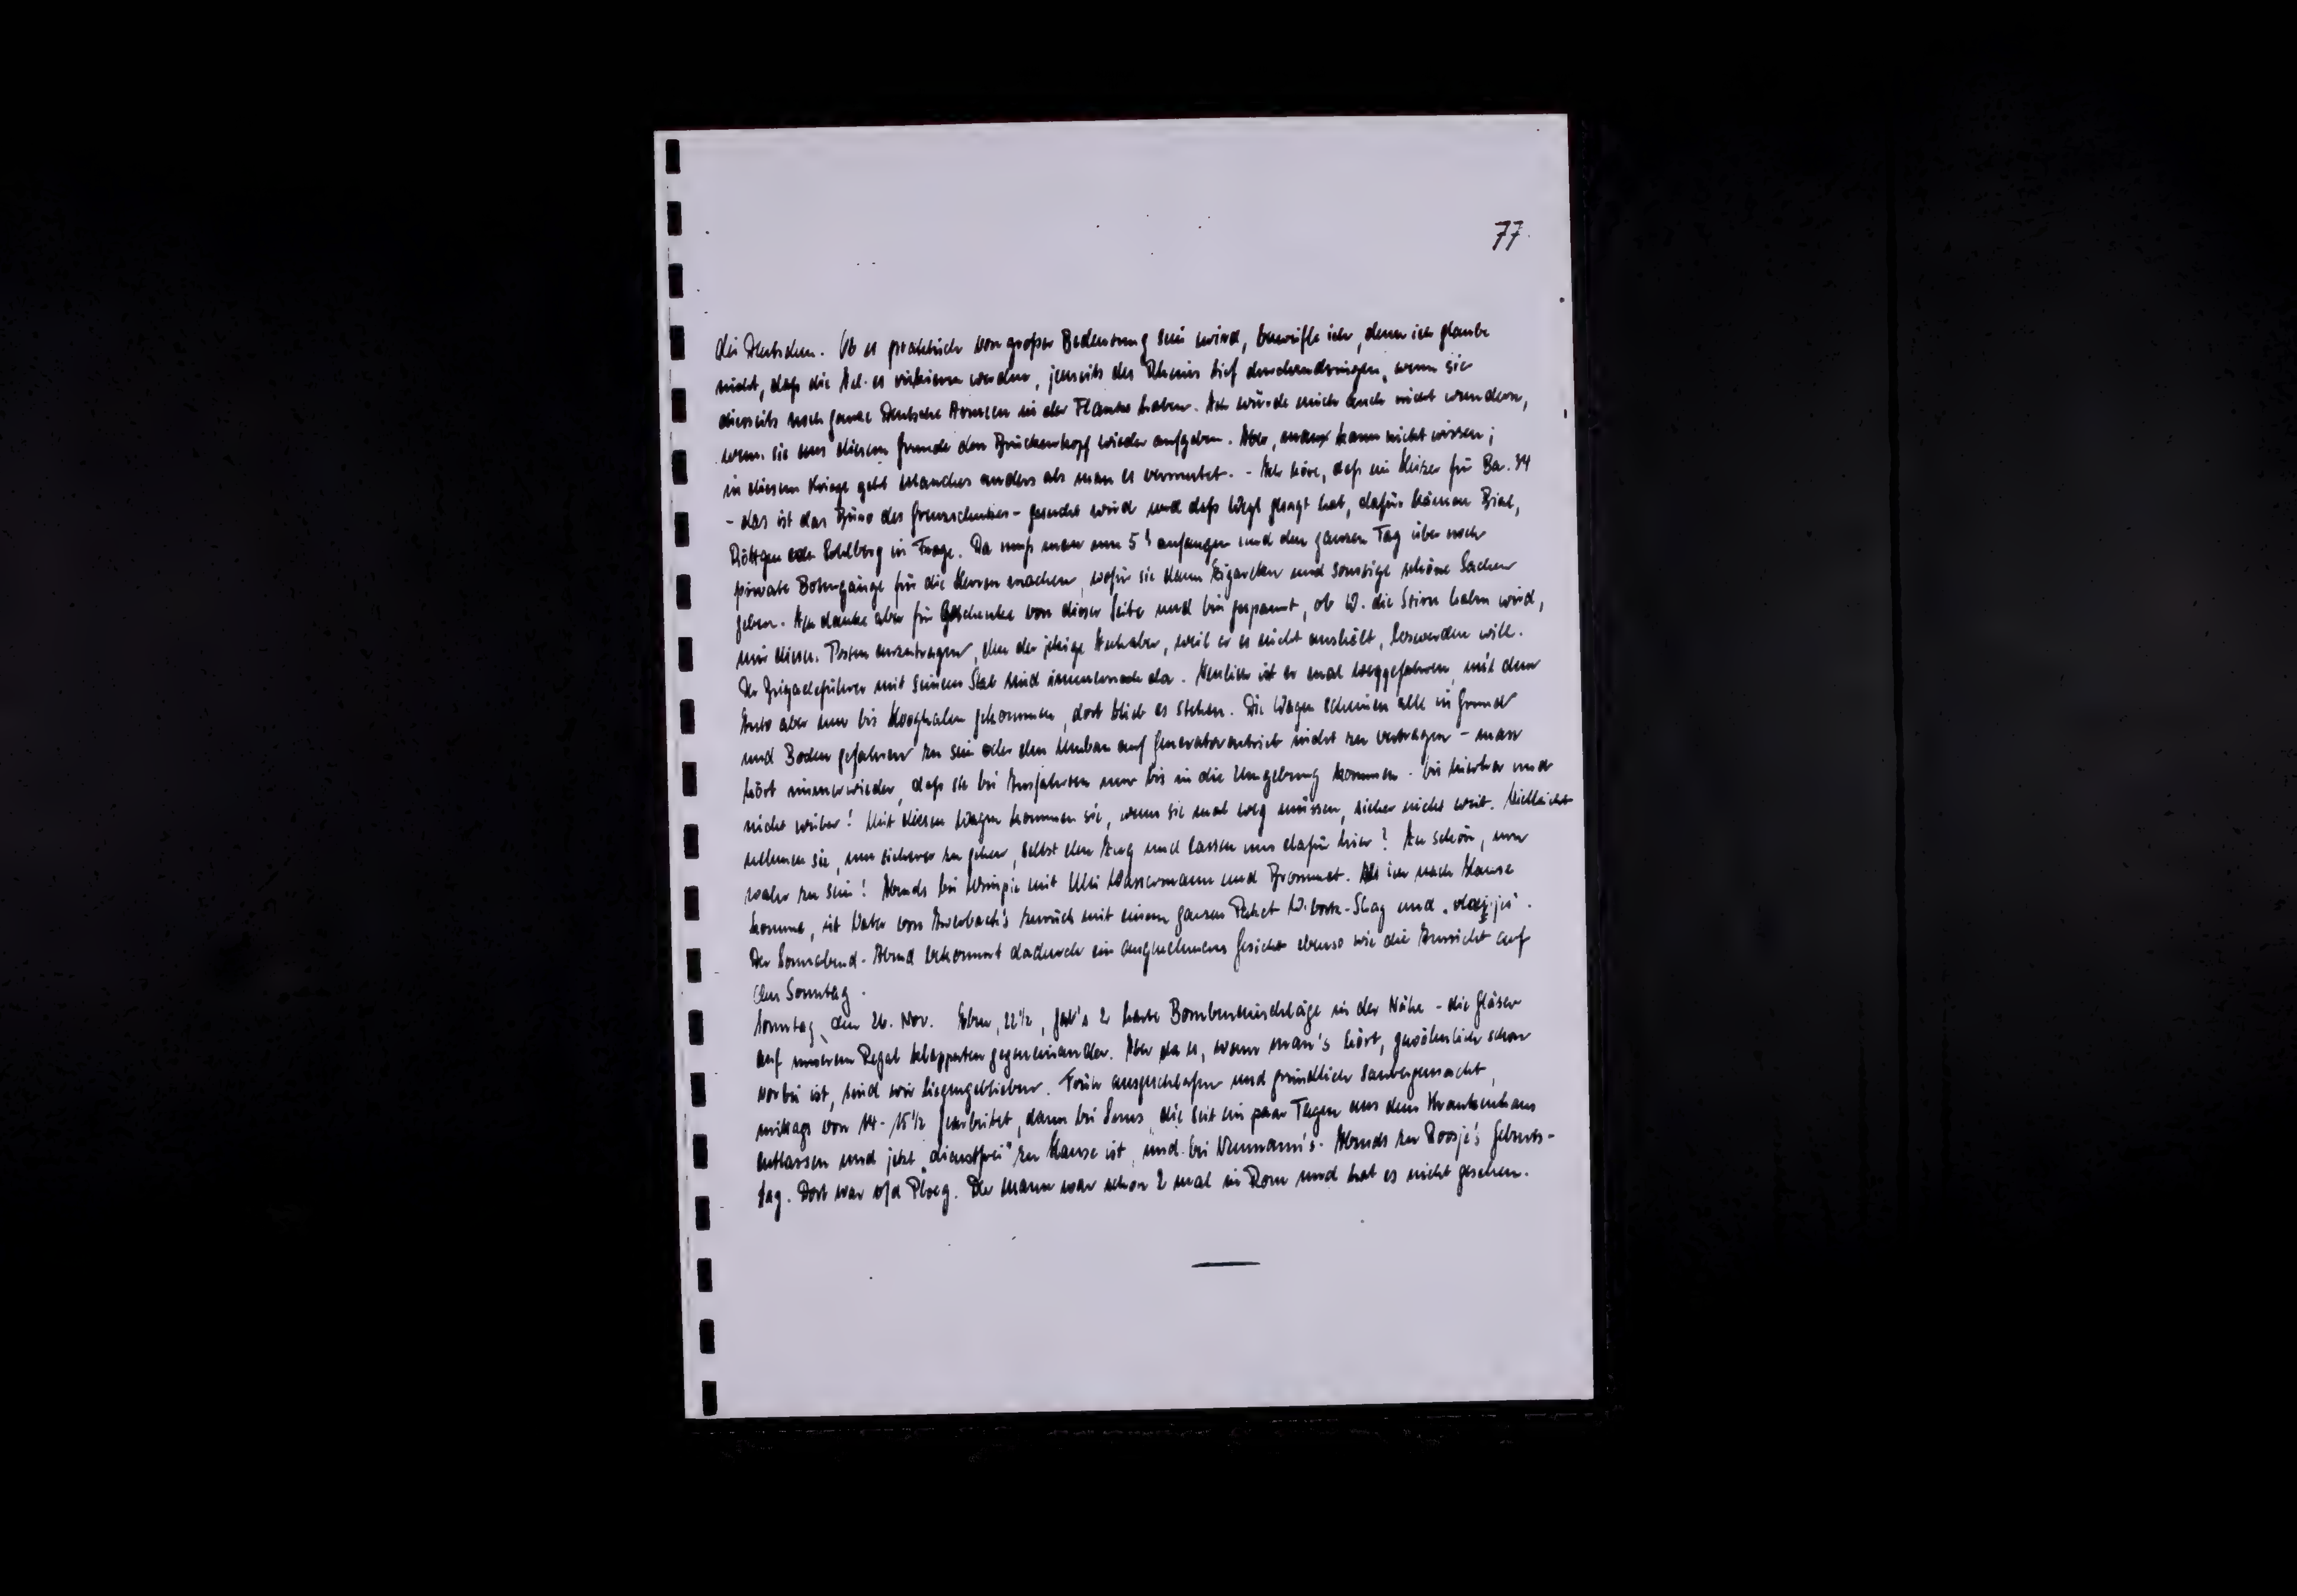 77.
die Deutschen. Ob es praktisch von grosser Bedeutung sein wird, bezweifle ich, denn ich glaube
nicht, dass die All. es riskieren werden, jenseits des Rheins tief durchzudringen, wenn sie
diesseits noch ganze Deutsche Armeen in der Flanke haben. Ich würde mich auch nicht wundern,
wenn sie aus diesem Grunde den Brückenkopf wieder aufgeben. Aber, man kann nicht wissen;
in diesem Kriege geht manches anders als man es vermutet. - Ich höre, dass ein Heizer für Bar. 34
- das ist das Büro des Grenzschutzes - gesucht wird und dass gesagt hat, dafür kämen
Röttgen oder in Frage. Da muss man um 5 h anfangen und den ganzen Tag über noch
private Botengänge für die Herren machen, wofür sie dann Zigaretten und sonstige schöne Sachen
geben. Ich danke aber für Geschenke von dieser Seite und bin gespannt, ob W. die Stirn haben wird,
mir diesen Posten anzutragen, den der jetzige Inhaber, weil er es nicht aushält, loswerden will.
Der Brigadeführer mit seinem Stab sind immernoch da. Neulich ist er mal weggefahren, mit dem
Auto aber nur bis Hooghalen gekommen, dort blieb es stehen. Die Wagen scheinen alle in Grund
und Boden gefahren zu sein oder den Umbau auf Generatorantrieb nicht zu vertragen - man
hört immerwieder, dass sie bei Ausfahrten nur bis in die Umgebung kommen. Bis hierher und
nicht weiter! Mit diesen Wagen kommen sie, wenn sie mal weg müssen, sicher nicht weit. Vielleicht
nehmen sie, um sicherer zu gehen, selbst den Zug und lassen uns dafür hier? Zu schön, um
wahr zu sein! Abends bei mit Wassermann und Brommet. Als ich nach Hause
komme, ist Vater von Auerbach's zurück mit einem ganzen Paket und
Der Sonnabend-Abend bekommt dadurch ein angenehmeres Gesicht ebenso wie die Aussicht auf
den Sonntag.
Sonntag, den 26. Nov. Eben, 22½, gab's 2 harte Bombeneinschläge in der Nähe - die Gläser
auf unserem Regal klapperten gegeneinander. Aber da es, wenn man's hört, gewöhnlich schon
vorbei ist, sind wir liegengeblieben. Früh ausgeschlafen und gründlich saubergemacht,
mittags von 14-15½ gearbeitet, dann bei die seit ein paar Tagen aus dem Krankenhaus
entlassen und jetzt „dienstfrei" zu Hause ist, und bei Neumann's. Abends zu Roosje's Geburts-
tag. Dort war v/d Ploeg. Der Mann war schon 2 mal in Rom und hat es nicht gesehen.